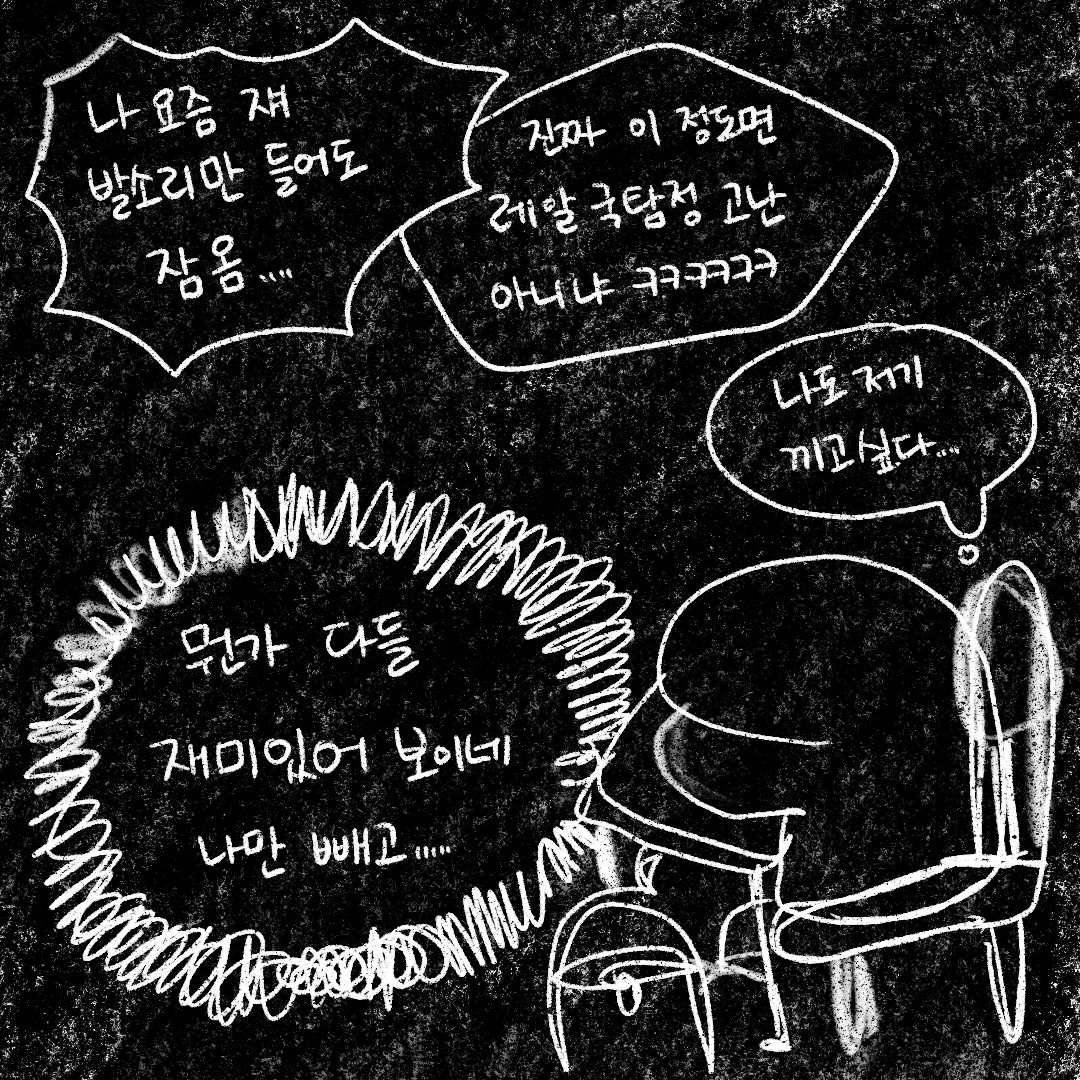 나 요즘 쟤
발소리만 들어도
잠 옴....
진짜 이 정도면
레알 국탐정 고난
아니냐 ㅋㅋㅋㅋㅋ
나도 저기
끼고싶다...
뭔가 다들
재미있어 보이네
나만 빼고.....